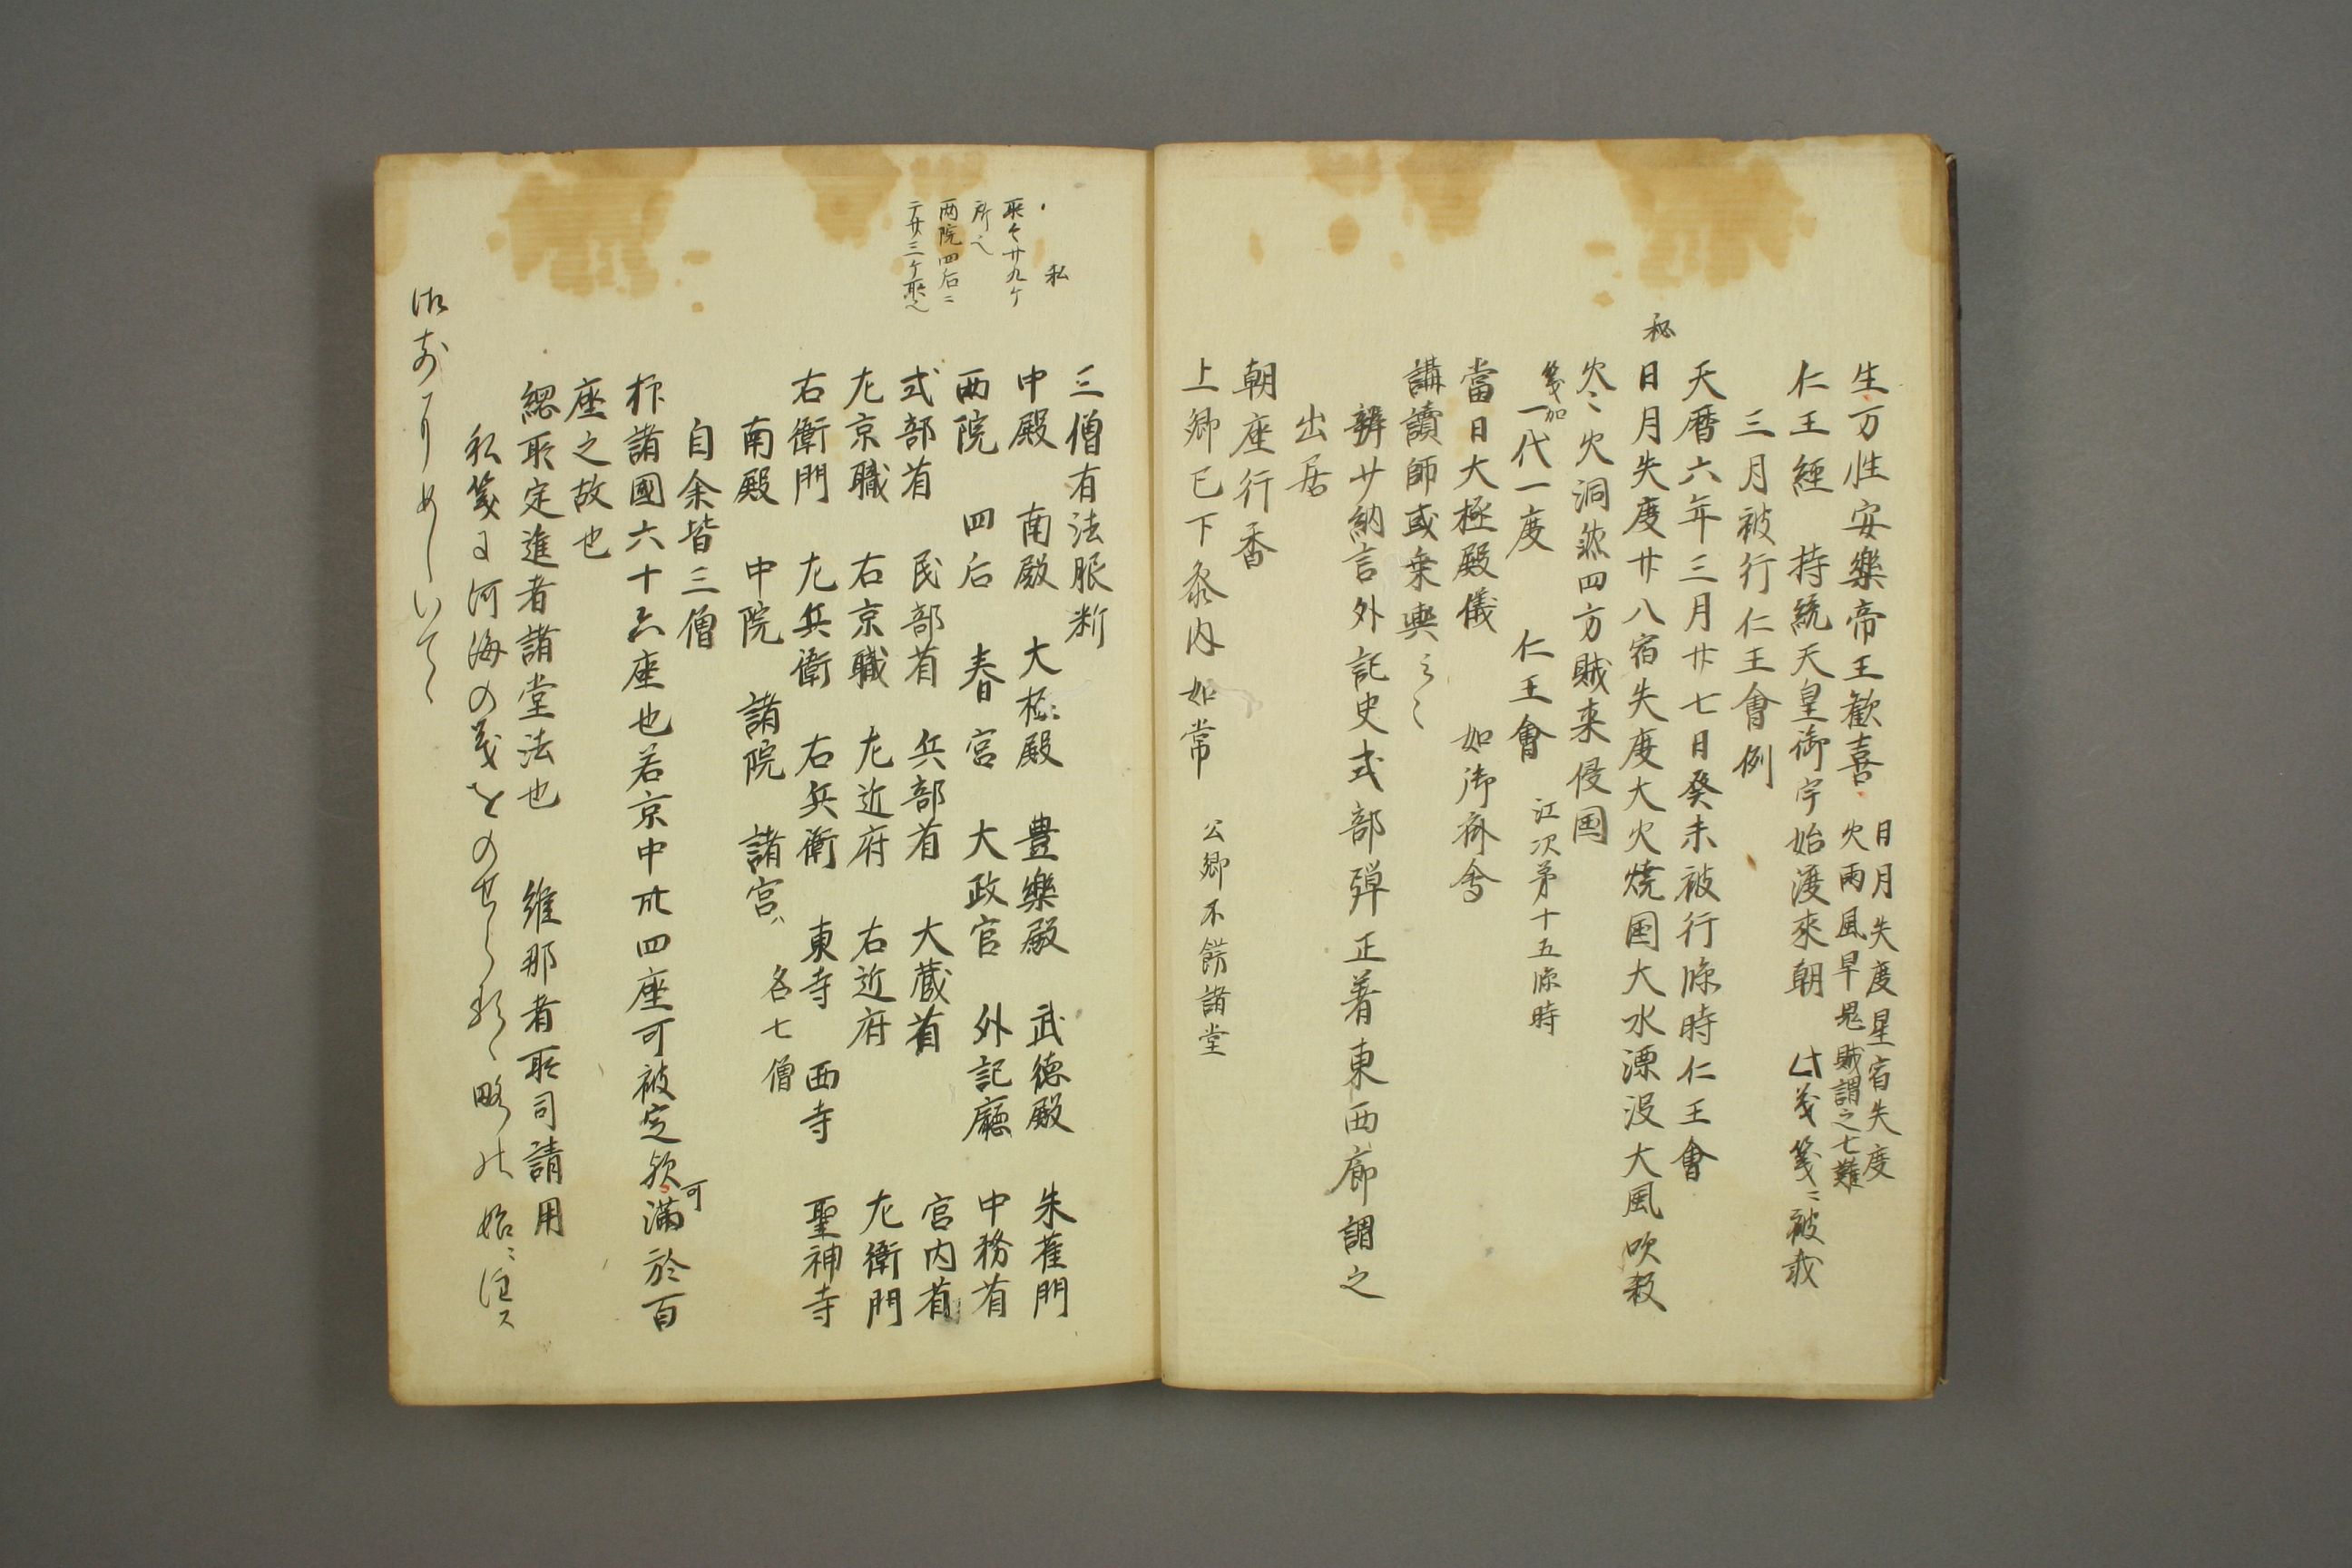 生万姓安樂帝王歓喜
日月失度星宿失度
火雨風旱鬼賊謂之七難
仁王經 持統天皇御宇始渡來朝 此義箋ニ被載
三月被行仁王會例
天暦六年三月廿七日癸未被行臨時仁王會
秘
日月失度廿八宿失度大火焼国大水漂没大風吹殺
火洞然四方賊来侵国
箋加
一代一度 仁王會 江次第十五臨時
當日大極殿儀 如御斎會
講讀師或乗輿云々
辨少納言外記史式部弾正著東西廊謂之
出居
朝座行香
上卿已下参内如常 公卿不餝諸堂
私
聚々廿九ケ
所也
両院四后ニ
テ廿三ケ聚也
三僧有法服断
中殿 南殿 大極殿 豊樂殿 武徳殿 朱雀門
両院 四后 春宮 大政官 外記廳 中務省
式部省 民部省 兵部省 大蔵省 宮内省
左京職 右京職 左近府 右近府 左衛門
右衛門 左兵衛 右兵衛 東寺 西寺 聖神寺
南殿 中院 諸院 諸宮 各七僧
自余皆三僧
作諸國六十六座也若京中卅四座可被定欤可満於百
座之故也
緫聚定進者諸堂法也 維那者聚司請用
私箋ニ河海の義をのせらるゝ略 始ニ注ス